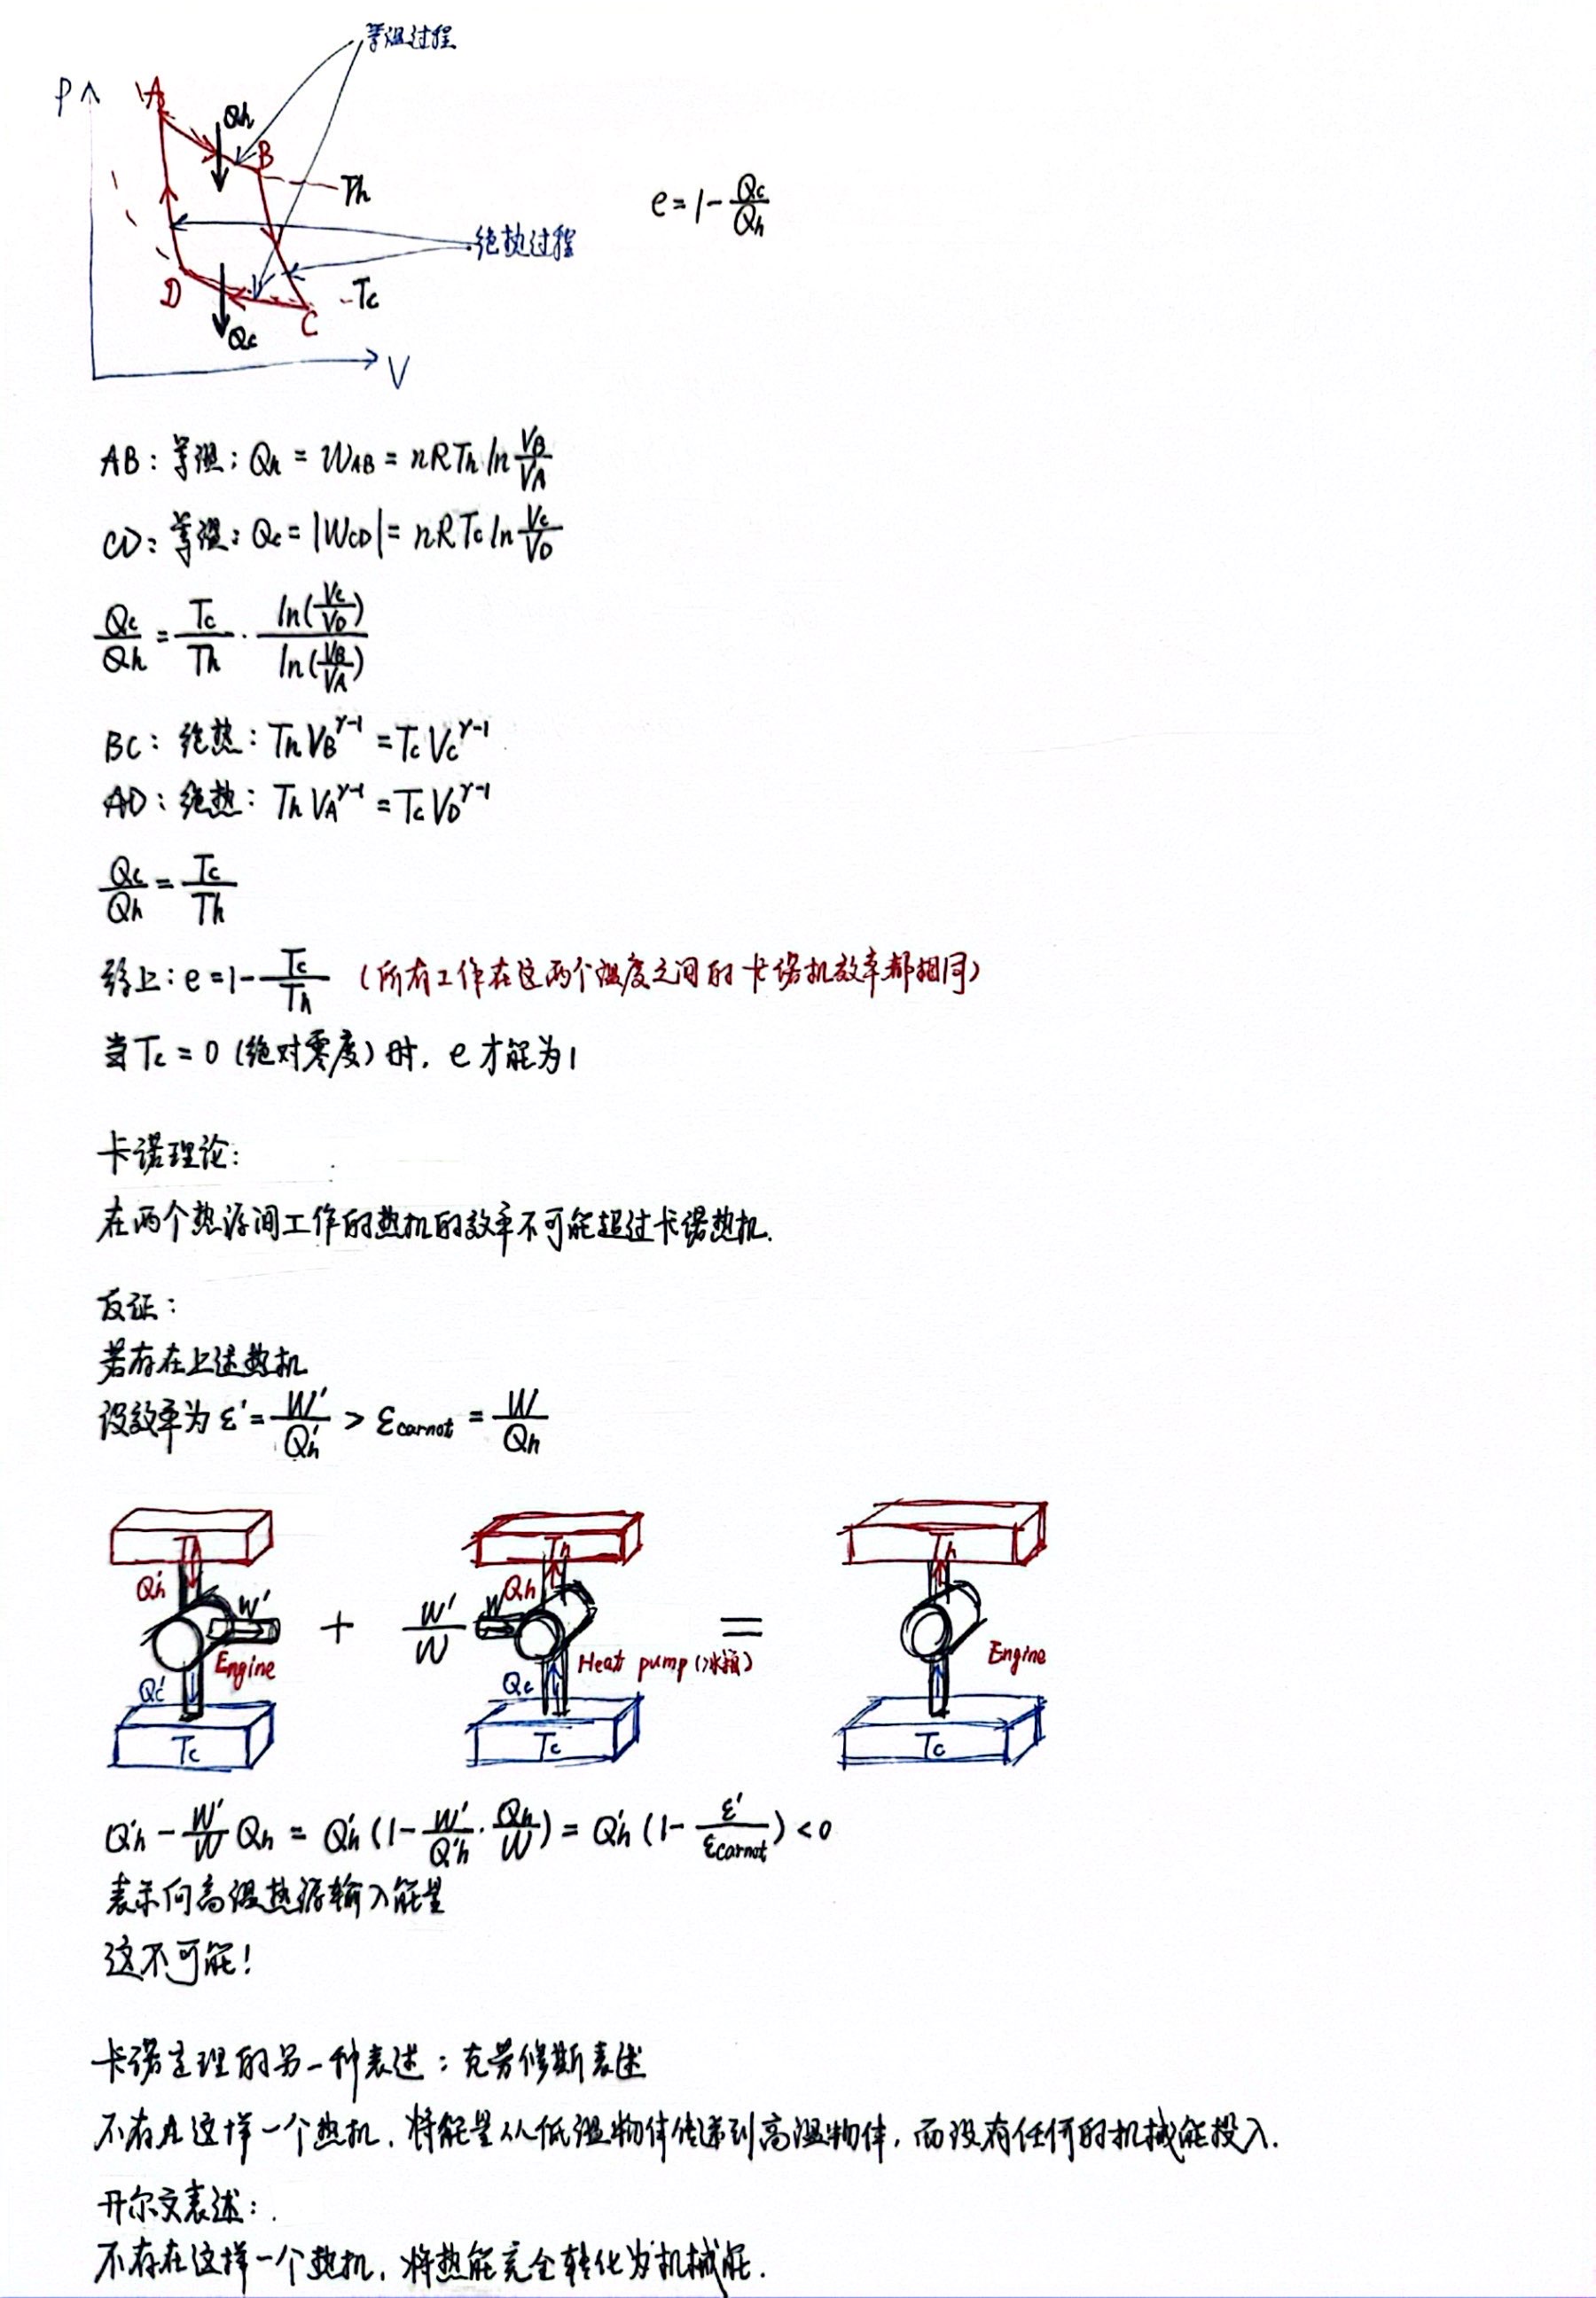 等温过程
P
A
Qh
B
Th
e=1-Qc/Qh
绝热过程
D
Tc
C
Qc
V
AB：等温：Qh = WAB = nRTh ln VB/VA
CD：等温：Qc = |WCD| = nRTc ln Vc/VD
Qc/Qh = Tc/Th · ln(Vc/VD)/ln(VB/VA)
BC：绝热：ThVB^γ-1 = TcVc^γ-1
AD：绝热：ThVA^γ-1 = TcVD^γ-1
Qc/Qh = Tc/Th
综上：e=1-Tc/Th （所有工作在这两个温度之间的卡诺机效率都相同）
当Tc = 0（绝对零度）时，e才能为1
卡诺理论：
在两个热源间工作的热机的效率不可能超过卡诺热机.
反证：
若存在上述热机
设效率为ε'=W'/Qh' > εcarnot = W/Qh
Th Th Th
Qh' W' + W'/W W Qh =
Engine Heat pump（冰箱） Engine
Qc' Qc
Tc Tc Tc
Q'h - W'/W Qh = Q'h (1 - W'/Q'h · Qh/W) = Q'h (1 - ε'/εcarnot) < 0
表示向高温热源输入能量
这不可能！
卡诺定理的另一种表述：克劳修斯表述
不存在这样一个热机，将能量从低温物体传递到高温物体，而没有任何的机械能投入.
开尔文表述：
不存在这样一个热机，将热能完全转化为机械能.